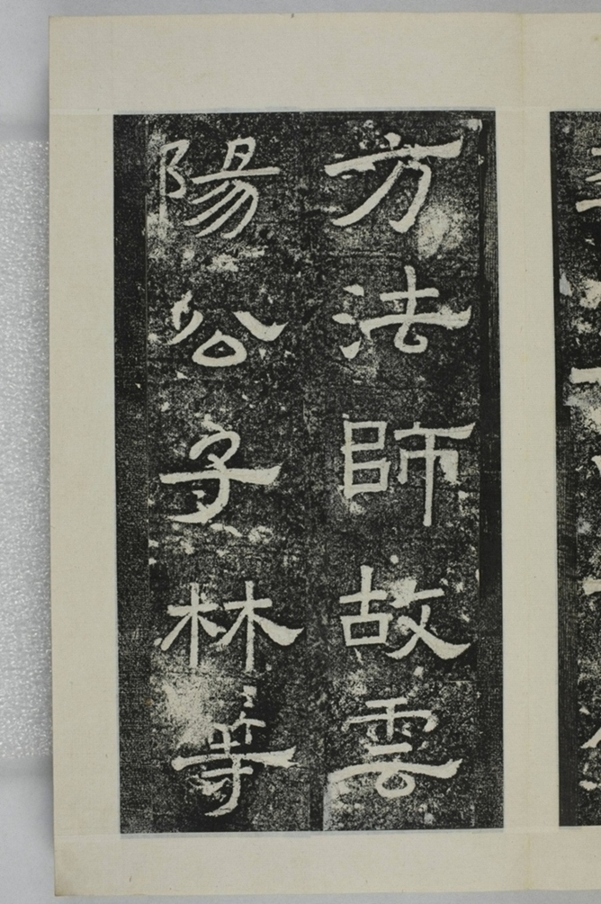 方法師故雲
陽公子林等